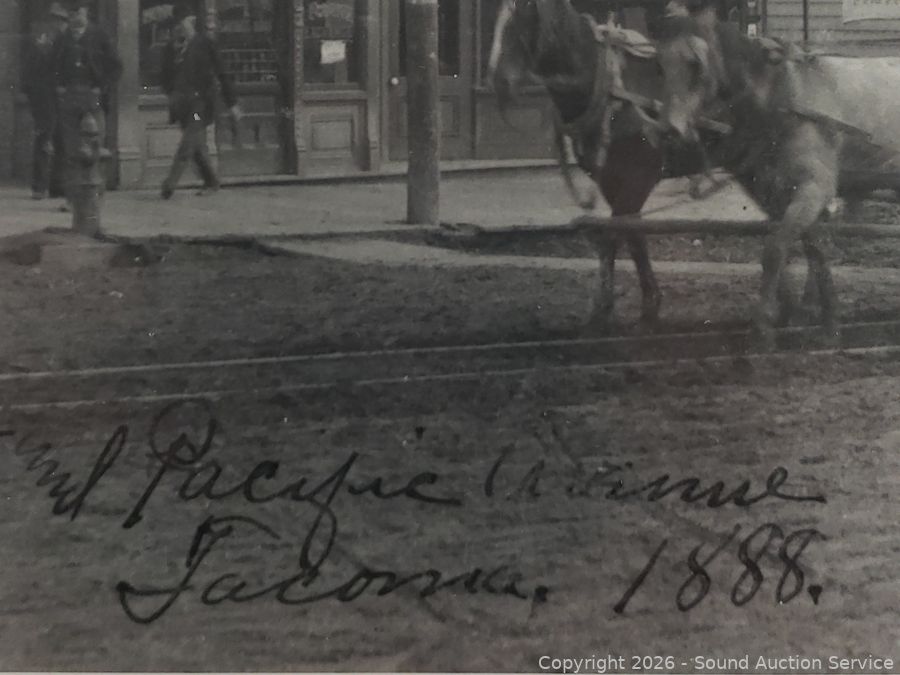 and Pacific Avenue
Tacoma. 1888.
Copyright 2026 - Sound Auction Service